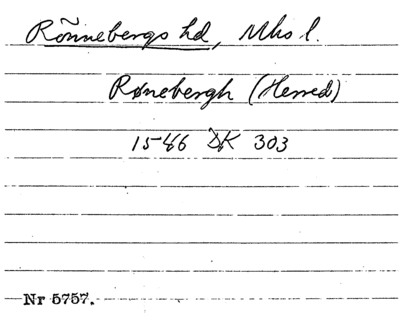 Rõnnebergs hd, Mhs l.
Rønebergh (Herred)
1546 DK 303
Nr 5757.